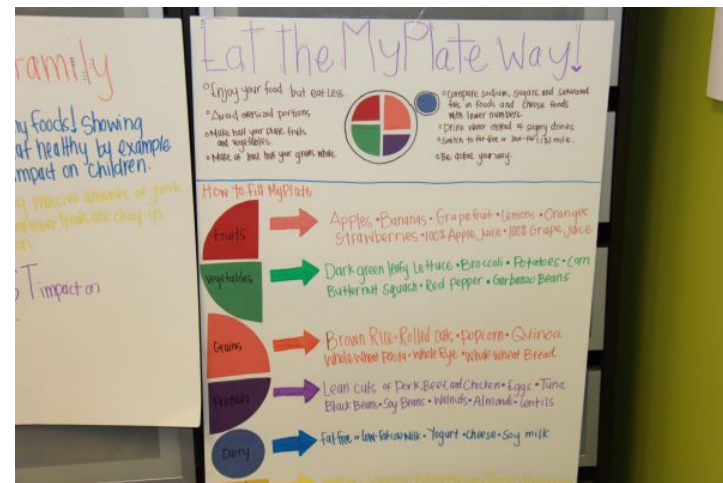 family
foods! Showing
eat healthy by example
impact on children.
massive amounts of
are okay in
impact on
Eat the MyPlate Way!
Enjoy your food but eat less.
Avoid oversized portions
Make half your plate fruits
and vegetables.
Make at least half your grains whole.
Compare sodium, sugars, and saturated
fats in foods and choose foods
with lower numbers.
Drink water instead of sugary drinks
Switch to fat-free or low-fat (1%) milk.
Be active your way.
How to fill MyPlate
Fruits
Apples • Bananas • Grapefruit • Lemons • Oranges
Strawberries • 100% Apple Juice • 100% Grape Juice
Vegetables
Dark green leafy Lettuce • Broccoli • Potatoes • Corn
Butternut Squash • Red Pepper • Garbanzo Beans
Grains
Brown Rice • Rolled Oats • Popcorn • Quinoa
Whole Wheat Pasta • Whole Rye • Whole-wheat Bread
Protein
Lean cuts of Pork, Beef, and Chicken • Eggs • Tuna
Black Beans • Soy Beans • Walnuts • Almonds • Lentils
Dairy
Fat-free or Low-Fat Milk • Yogurt • Cheese • Soy milk